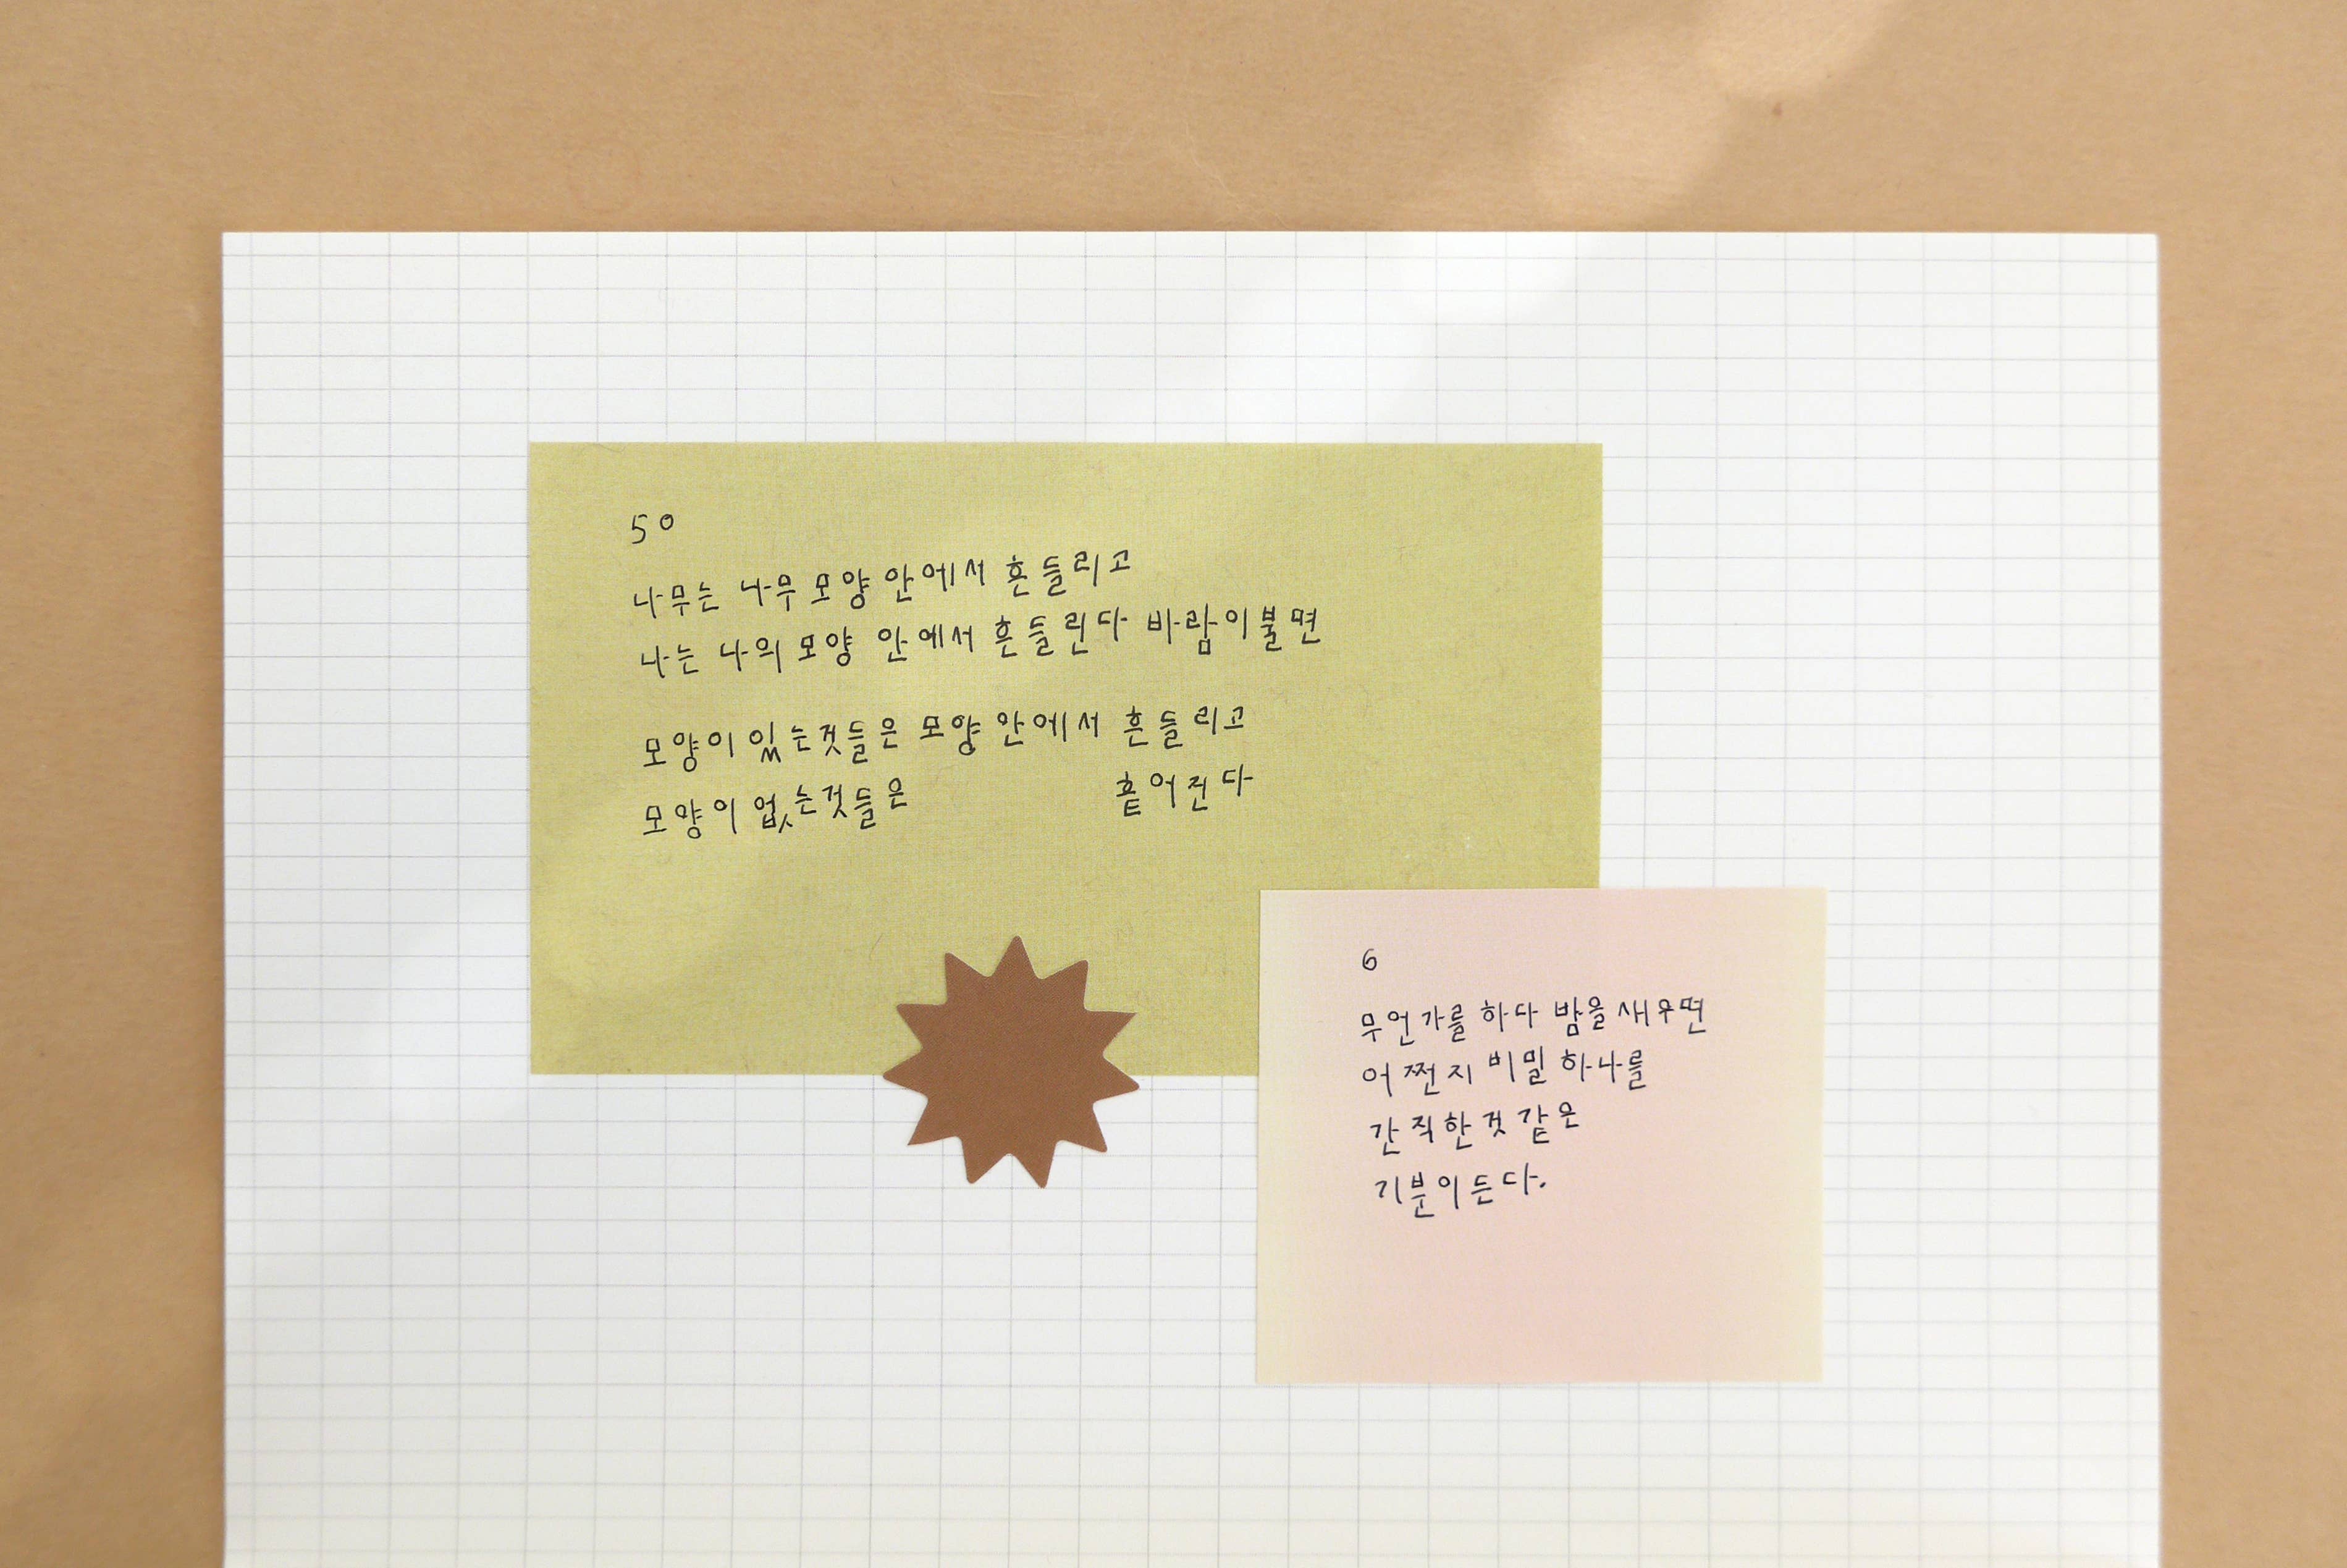 50
나무는 나무 모양 안에서 흔들리고
나는 나의 모양 안에서 흔들린다 바람이불면
모양이 있는것들은 모양 안에서 흔들리고
모양이 없는것들은 흩어진다
6
무언가를 하다 밤을 새우면
어쩐지 비밀 하나를
간직한것 같은
기분이 든다.